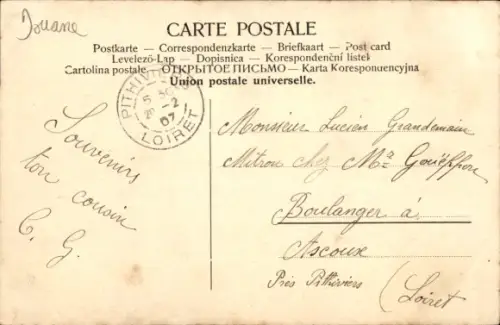 Douane
CARTE POSTALE
Postkarte — Correspondenzkarte — Briefkaart — Post card
Levelező-Lap — Dopisnica — Korespondenční lístek
Cartolina postale — ОТКРЫТОЕ ПИСЬМО — Karta Korespondencyjna
Union postale universelle.
PITHIVIERS
5
26 -2
07
LOIRET
Souvenirs
ton cousin
C. G.
Monsieur Lucien Grandemain
Mitron chez Mr Gouëffon
Boulanger à
Ascoux
Près Pithiviers
(Loiret